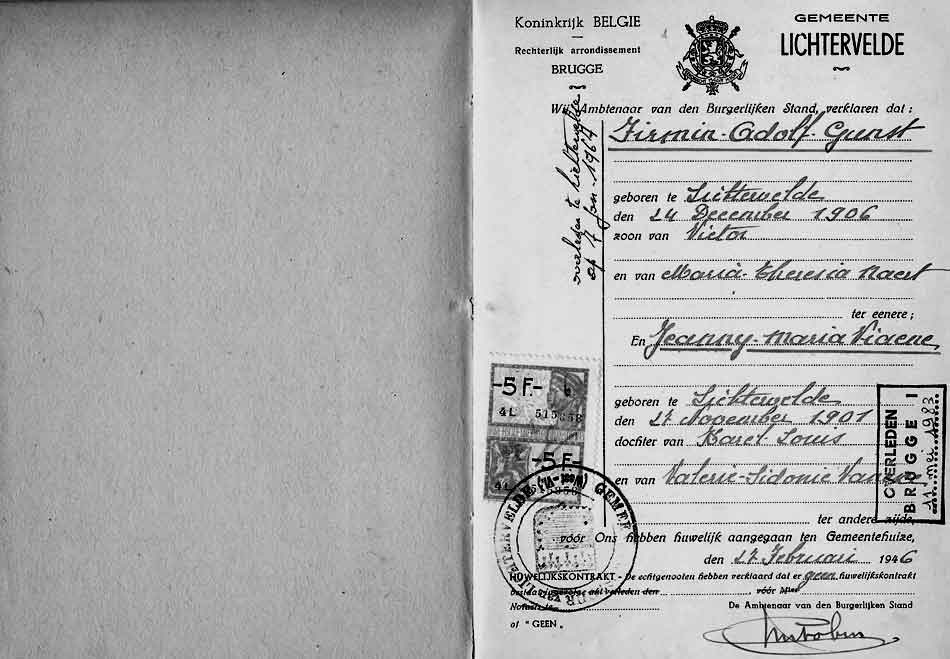 Koninkrijk BELGIE
Rechterlijk arrondissement
BRUGGE
GEMEENTE
LICHTERVELDE
Wij Ambtenaar van den Burgerlijken Stand, verklaren dat :
Firmin-Adolf Gunst
geboren te Lichtervelde
den 24 December 1906
zoon van Victor
en van Maria-Theresia Naert
ter eenere ;
En Jeanny-Maria Viaene,
geboren te Lichtervelde
den 27 November 1901
dochter van Karel-Louis
en van Valerie-Sidonie
ter andere zijde,
vóór Ons hebben huwelijk aangegaan ten Gemeentehuize,
den 27 Februari 1946
HUWELIJKSKONTRAKT - De echtgenooten hebben verklaard dat er geen huwelijkskontrakt
vóór
Notaris te
of " GEEN "
De Ambtenaar van den Burgerlijken Stand
overleden te Lichtervelde
op 7 Jan. 1967
-5 F.-
4L 51585B
-5 F-
LICHTERVELDE (West-Vl.) GEMEE
OVERLEDEN
BRUGGE I
11 mei 1983